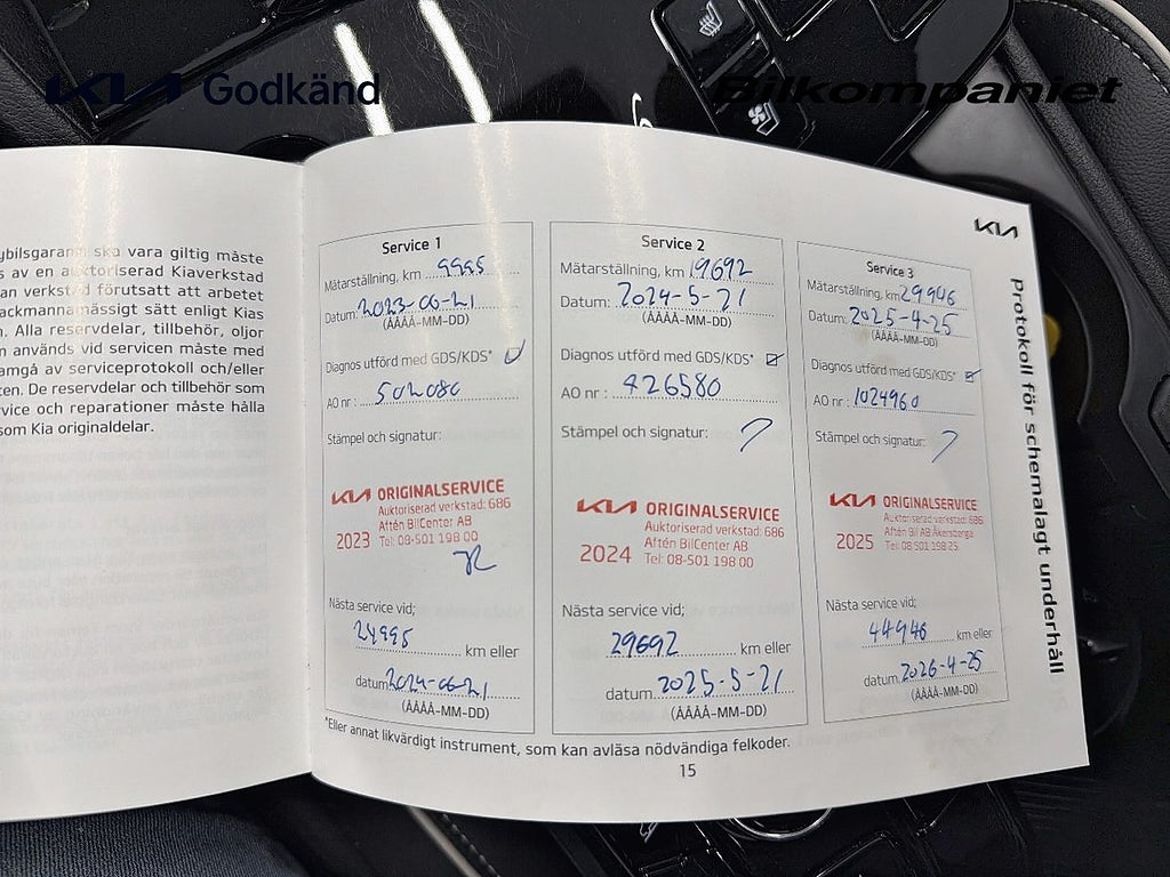 KIA Godkänd
Bilkompaniet
ybilsgaranti ska vara giltig måste
s av en auktoriserad Kiaverkstad
an verkstad förutsatt att arbetet
ackmannamässigt sätt enligt Kias
n. Alla reservdelar, tillbehör, oljor
n används vid servicen måste med
amgå av serviceprotokoll och/eller
ten. De reservdelar och tillbehör som
vice och reparationer måste hålla
som Kia originaldelar.
KIA
Protokoll för schemalagt underhåll
Service 1
Mätarställning, km 9995
Datum: 2023-06-21
(ÅÅÅÅ-MM-DD)
Diagnos utförd med GDS/KDS*
AO nr : 502080
Stämpel och signatur:
KIA ORIGINALSERVICE
Auktoriserad verkstad: 686
Aftén BilCenter AB
2023 Tel: 08-501 198 00
Nästa service vid;
24995 km eller
datum 2024-06-21
(ÅÅÅÅ-MM-DD)
Service 2
Mätarställning, km 19692
Datum: 2024-5-21
(ÅÅÅÅ-MM-DD)
Diagnos utförd med GDS/KDS*
AO nr : 826580
Stämpel och signatur:
KIA ORIGINALSERVICE
Auktoriserad verkstad: 686
Aftén BilCenter AB
2024 Tel: 08-501 198 00
Nästa service vid;
29692 km eller
datum 2025-5-21
(ÅÅÅÅ-MM-DD)
Service 3
Mätarställning, km 29946
Datum: 2025-4-25
(ÅÅÅÅ-MM-DD)
Diagnos utförd med GDS/KDS*
AO nr : 1024960
Stämpel och signatur:
KIA ORIGINALSERVICE
Auktoriserad verkstad: 686
Aftén Bil AB Åkersberga
2025 Tel: 08-501 198 25
Nästa service vid;
44946 km eller
datum 2026-4-25
(ÅÅÅÅ-MM-DD)
*Eller annat likvärdigt instrument, som kan avläsa nödvändiga felkoder.
15